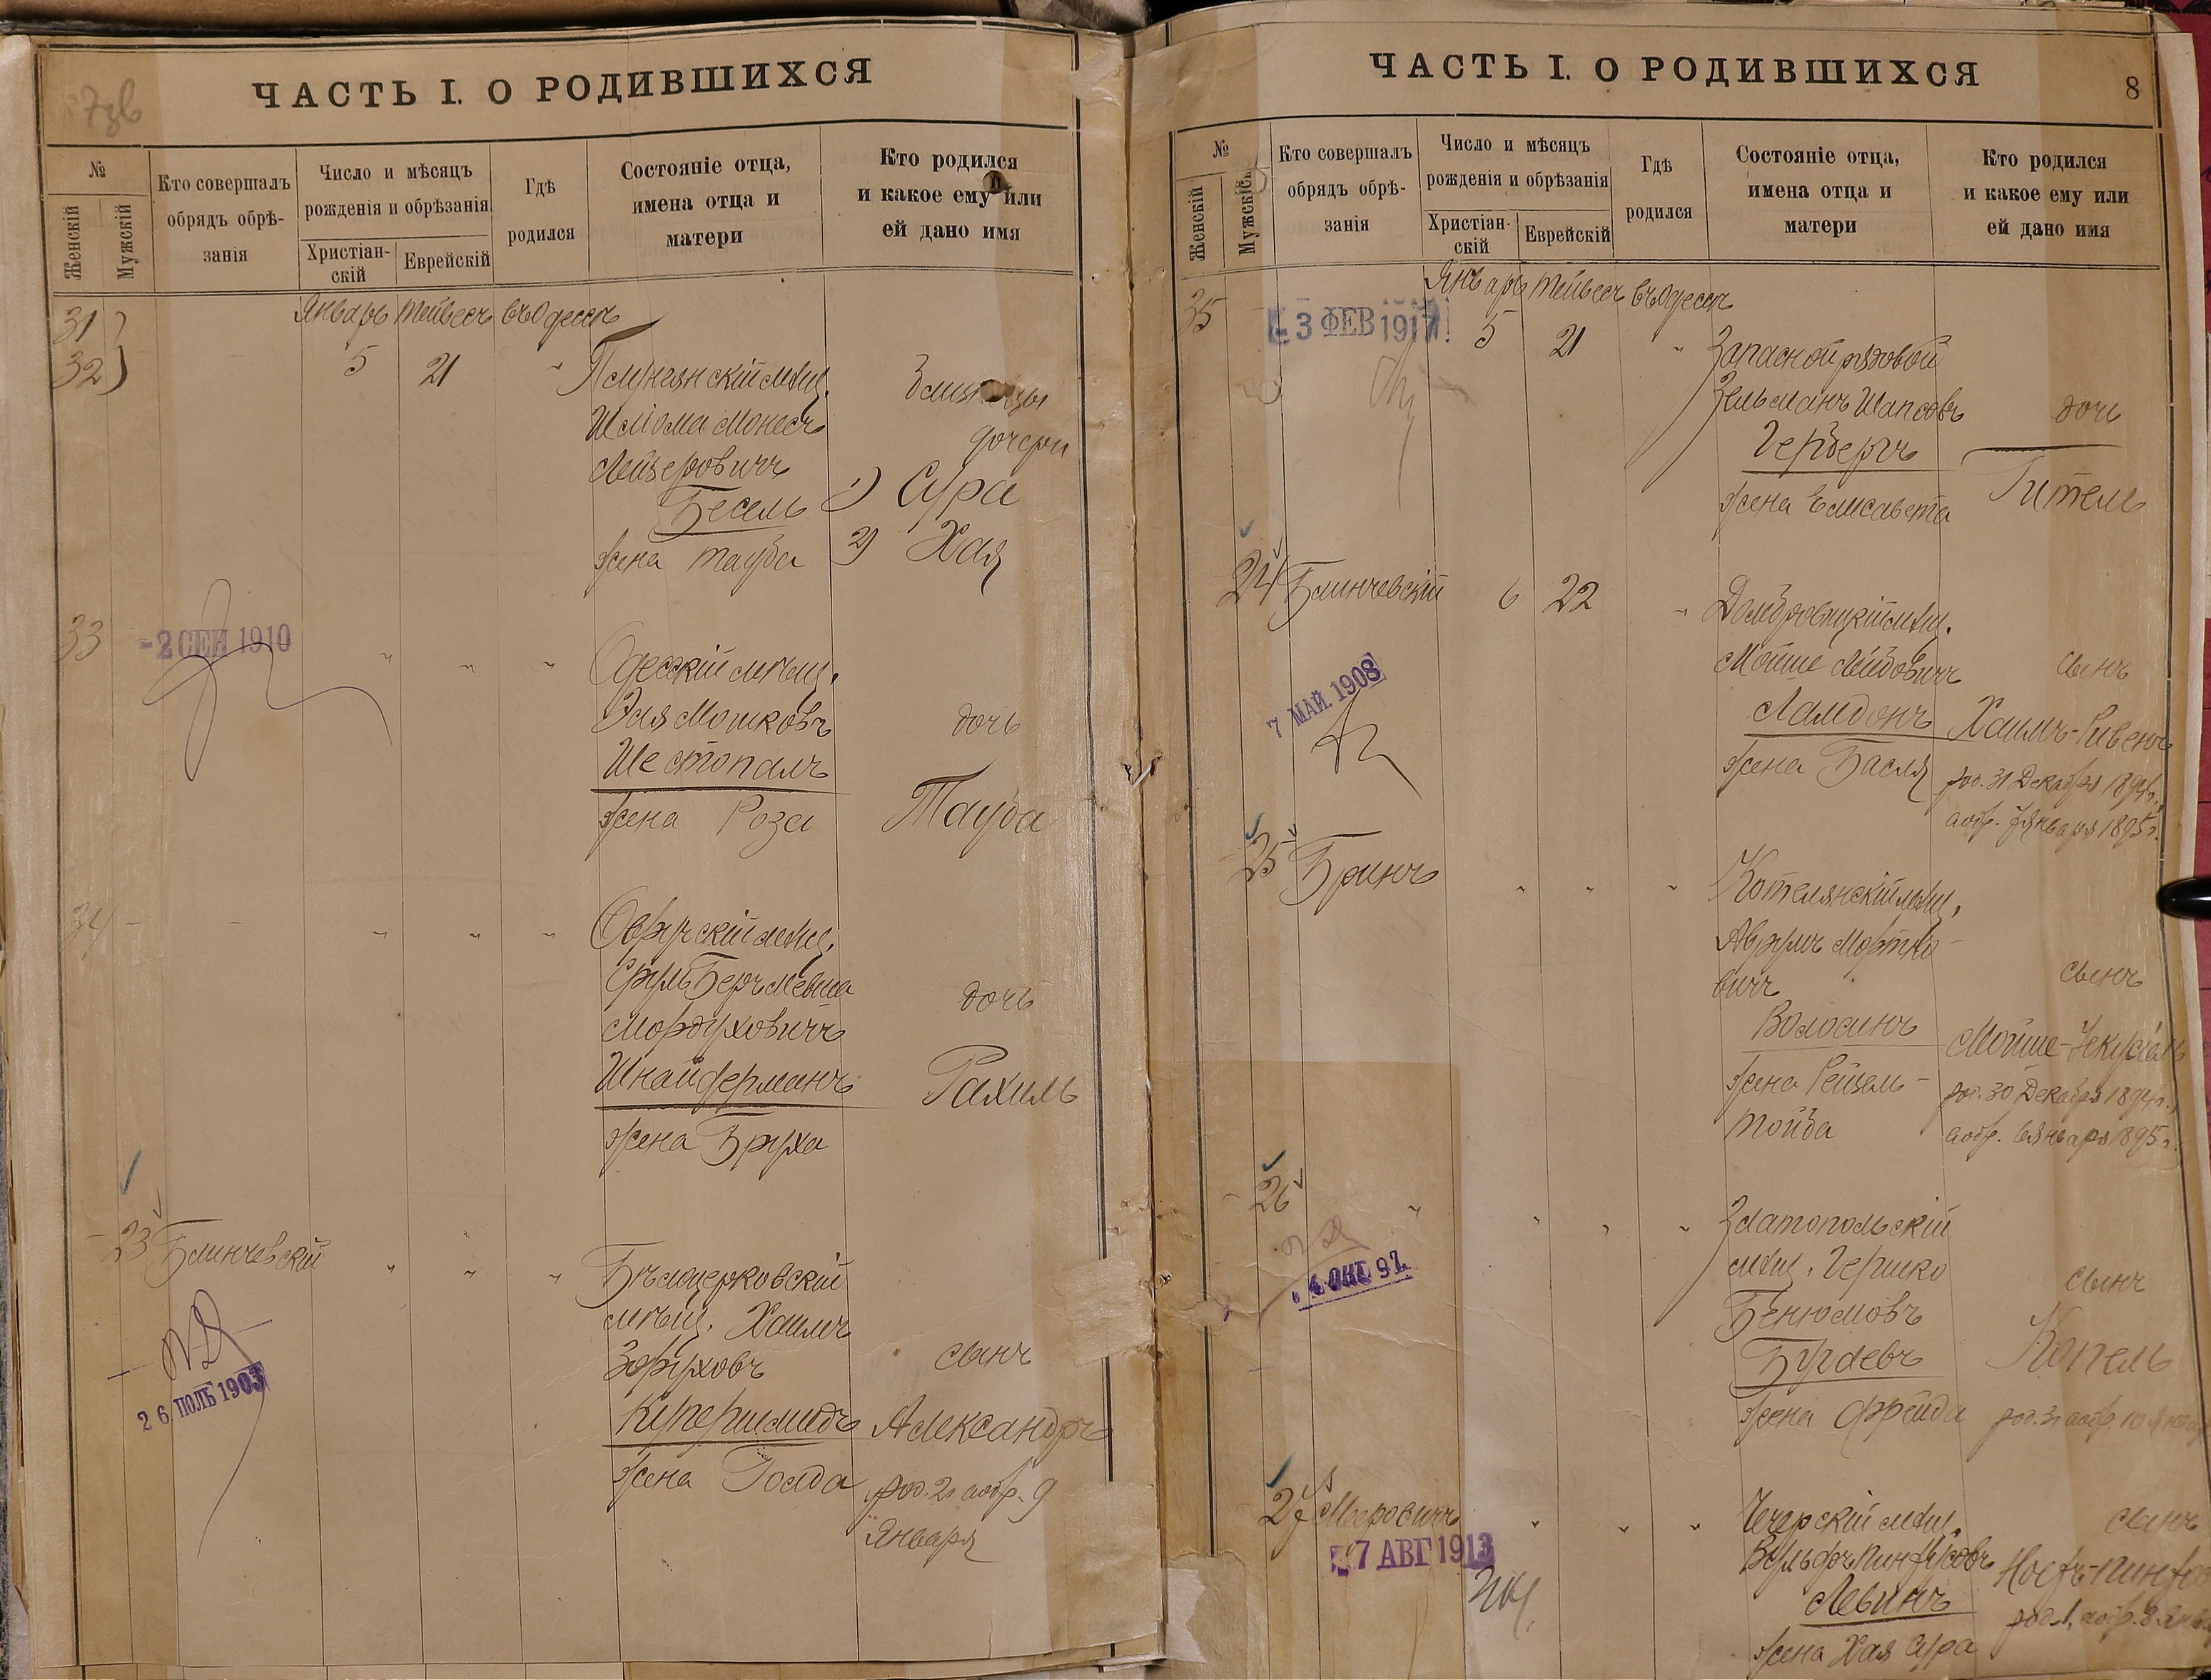 ЧАСТЬ I. О РОДИВШИХСЯ
№
Женскій
Мужскій
Кто совершалъ
обрядъ обрѣ-
занія
Число и мѣсяцъ
рожденія и обрѣзанія
Христіан-
скій
Еврейскій
Гдѣ
родился
Состояніе отца,
имена отца и
матери
Кто родился
и какое ему или
ей дано имя
Январь Тейвесъ въ Одессѣ
31
32
5 21 "
мѣщ.
Шлiома Монесъ
Лейзеровичъ
Бесель
жена Тауба
дочери
1) Сура
2) Хая
33
- 2 СЕН 1910
" " "
Одесскій мѣщ.
Эля Мошковъ
Шестопалъ
жена Роза
дочь
Тауба
34 - -
" " "
Овручскій мѣщ.
Сруль Беръ
Мордуховичъ
Шнайдерманъ
жена Бруха
дочь
Рахиль
23 Блинчевскій
26 ІЮЛЬ 1903
" " "
Бѣлоцерковскій
мѣщ. Хаимъ
Купершмидъ
жена Голда
сынъ
Александръ
род. 2, а обр. 9
Января
ЧАСТЬ I. О РОДИВШИХСЯ
8
№
Женскій
Мужскій
Кто совершалъ
обрядъ обрѣ-
занія
Число и мѣсяцъ
рожденія и обрѣзанія
Христіан-
скій
Еврейскій
Гдѣ
родился
Состояніе отца,
имена отца и
матери
Кто родился
и какое ему или
ей дано имя
Январь Тейвесъ въ Одессѣ
35
- 3 ФЕВ 1917
5 21 "
Запасной рядовой
Зельманъ Шапсовъ
Герберъ
жена Елисавета
дочь
Гитель
24 Блинчевскій
7 МАЙ 1908
6 22 "
Домбровицкій мѣщ.
Мойше Лейбовичъ
Ламдонъ
жена Бася
сынъ
Хаимъ-Рувенъ
род. 31 Декабря 1894 г.,
а обр. 7 Января 1895 г.
25 Бринъ
" " "
Котелянскій мѣщ.
Аврумъ Мортко-
вичъ
Волосинъ
жена Рейзель-
Тойба
сынъ
Мойше-Іекусіель
род. 30 Декабря 1894 г.,
а обр. 6 Января 1895 г.
26 "
4 ОКТ. 97.
" " "
Златопольскій
мѣщ. Гершко
Бенюмовъ
Бугаевъ
жена Фрейда
сынъ
Копель
род. 3, а обр. 10 Января
27 Мееровичъ
- 7 АВГ 1913
" " "
мѣщ.
Вольфъ Пинхусовъ
Левинъ
жена Хая Сура
сынъ
род. 1, а обр. 8 Янв.